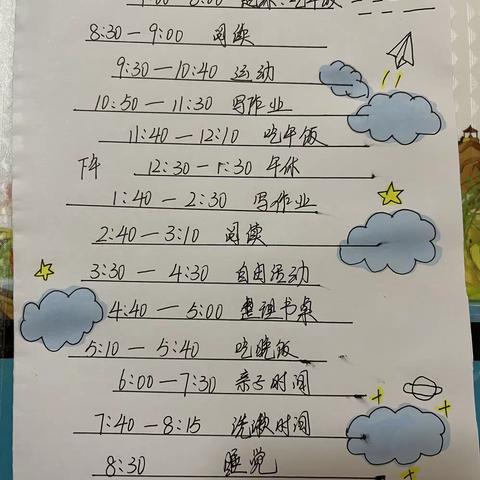 8:30 — 9:00 阅读
9:30 — 10:40 运动
10:50 — 11:30 写作业
11:40 — 12:10 吃午饭
下午 12:30 — 1:30 午休
1:40 — 2:30 写作业
2:40 — 3:10 阅读
3:30 — 4:30 自由活动
4:40 — 5:00 整理书桌
5:10 — 5:40 吃晚饭
6:00 — 7:30 亲子时间
7:40 — 8:15 洗漱时间
8:30 睡觉